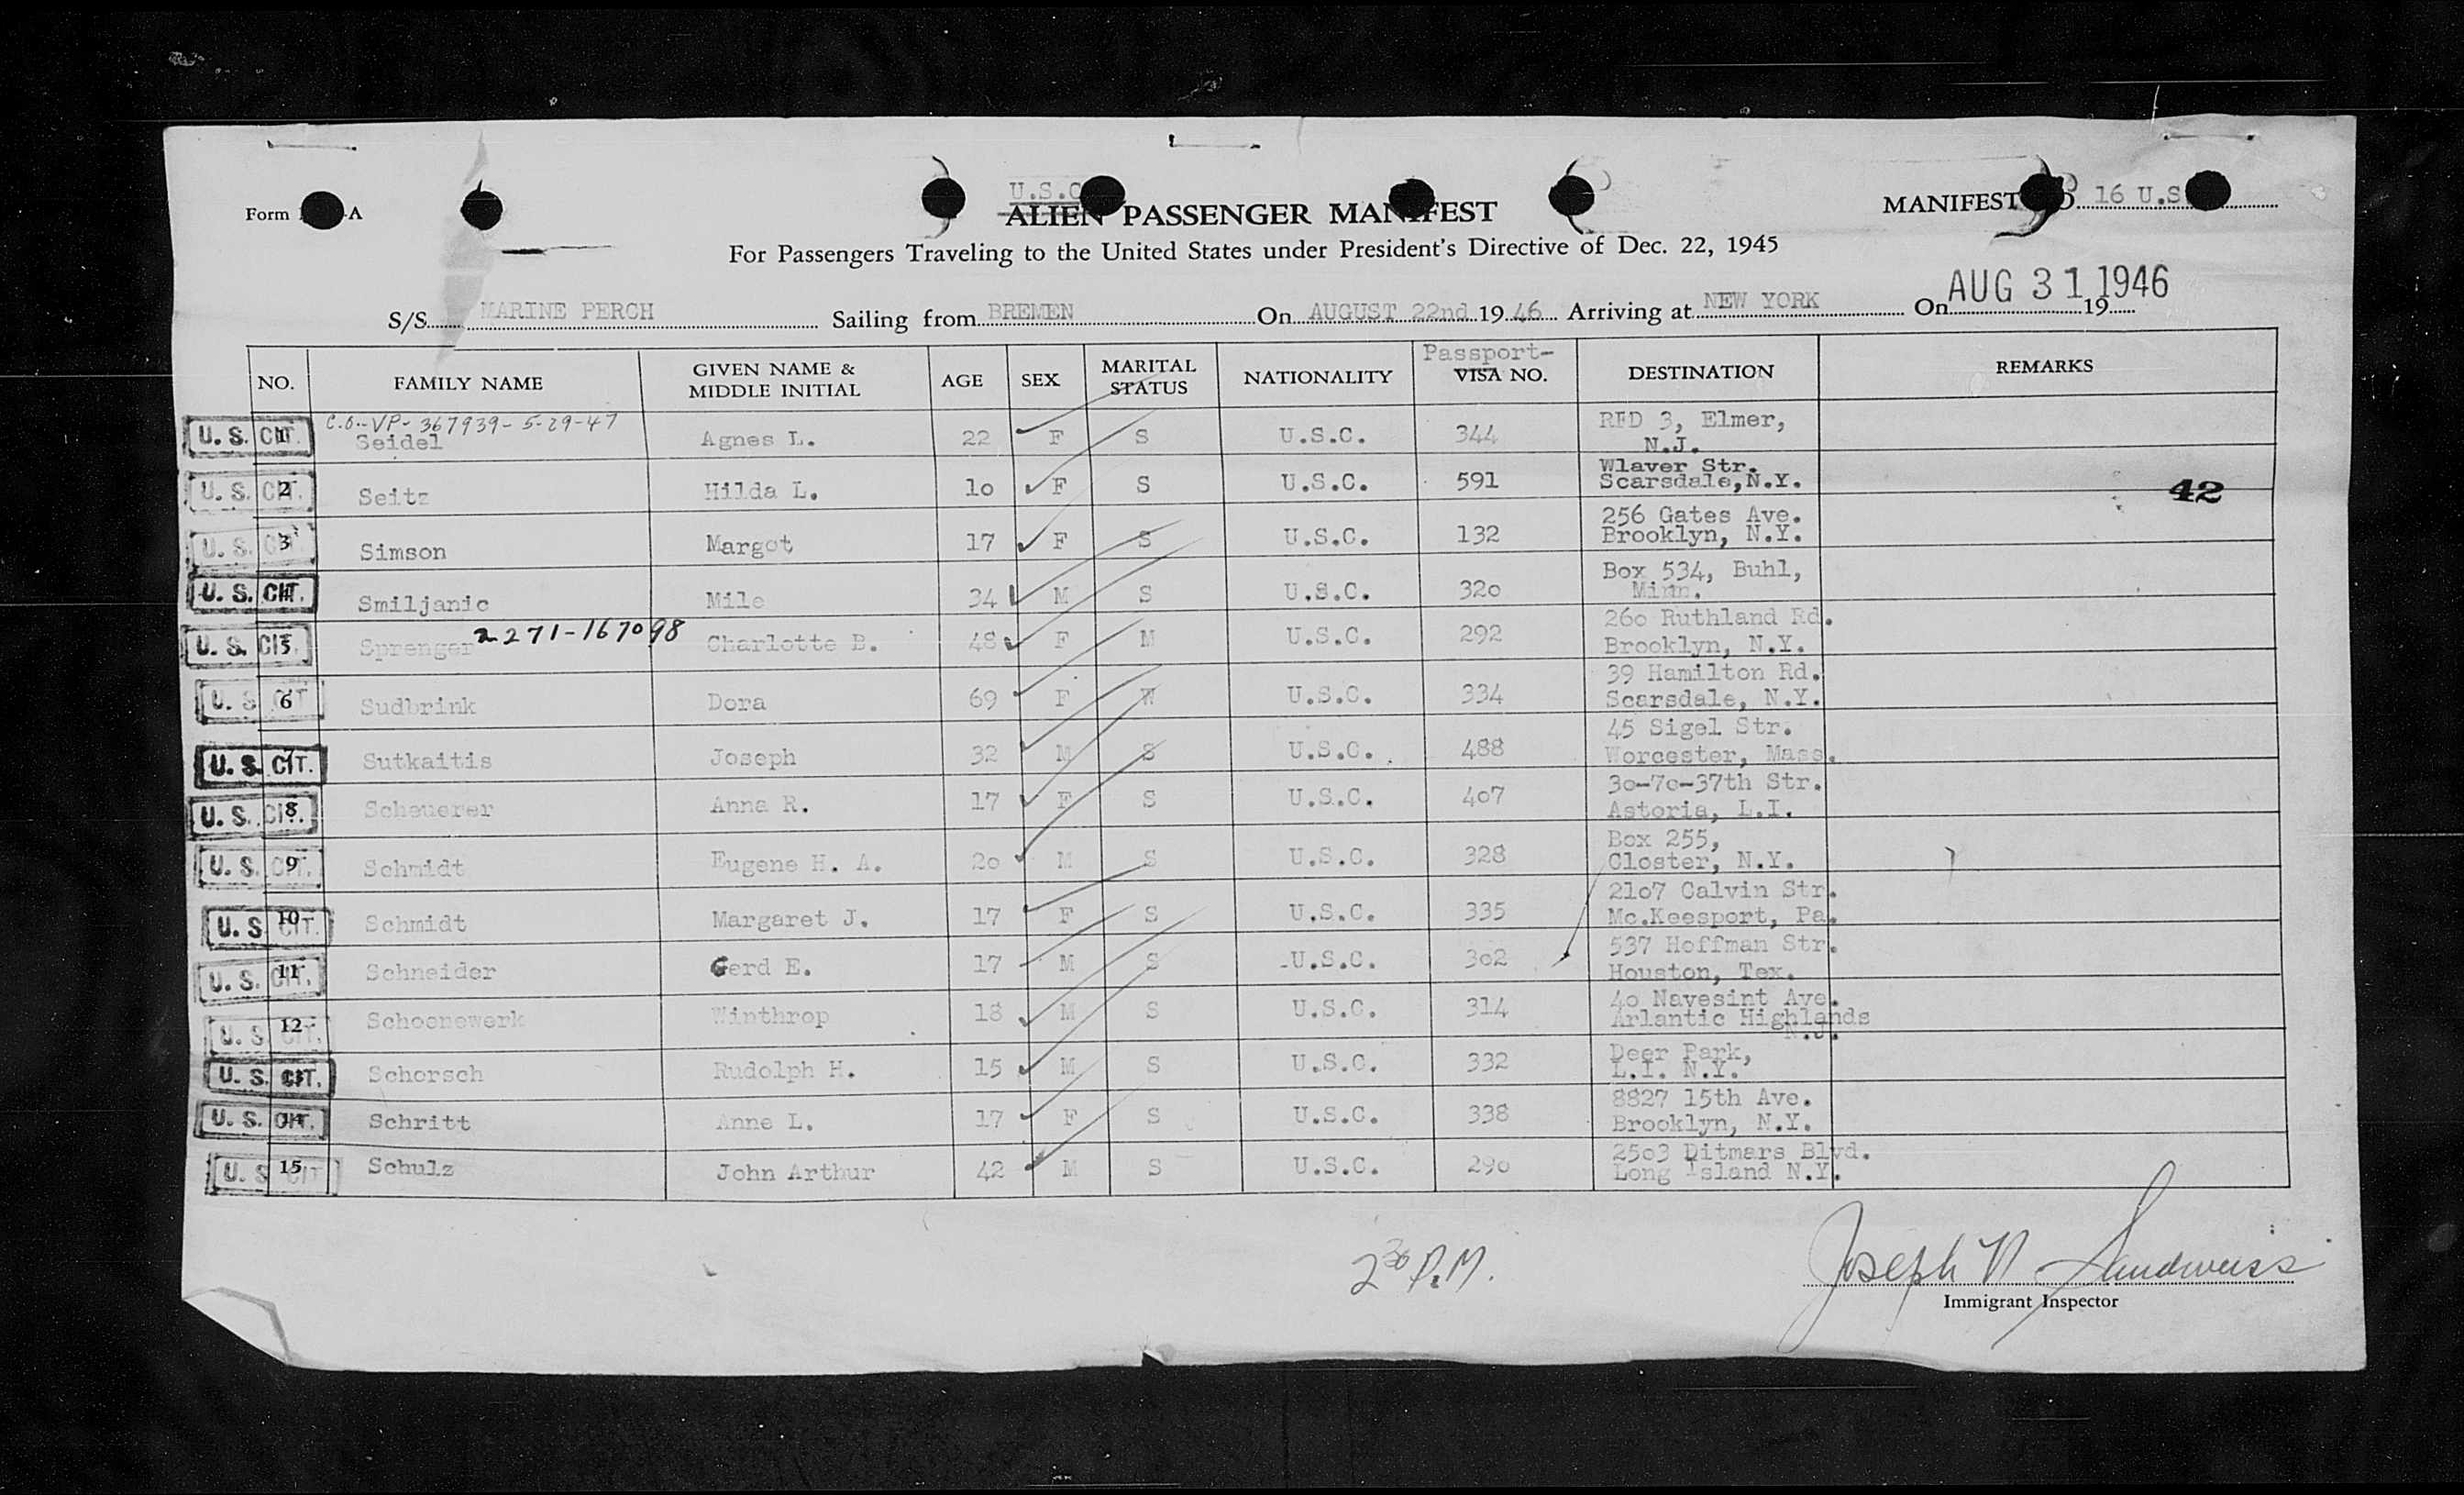 U.S.C
Form A
ALIEN PASSENGER MANIFEST
MANIFEST 16 U.S
For Passengers Traveling to the United States under President's Directive of Dec. 22, 1945
S/S MARINE PERCH Sailing from BREMEN On AUGUST 22nd 19 46 Arriving at NEW YORK On AUG 31 1946 19
NO. FAMILY NAME GIVEN NAME & MIDDLE INITIAL AGE SEX MARITAL STATUS NATIONALITY Passport- VISA NO. DESTINATION REMARKS
C.O.-VP- 367939- 5-29-47
U. S. CIT. 1 Seidel Agnes L. 22 F S U.S.C. 344 RFD 3, Elmer,
N.J.
U. S. CIT. 2 Seitz Hilda L. 1o F S U.S.C. 591 Wlaver Str.
Scarsdale,N.Y.
42
U. S. CIT. 3 Simson Margot 17 F S U.S.C. 132 256 Gates Ave.
Brooklyn, N.Y.
U. S. CIT. 4 Smiljanic Mile 34 M S U.S.C. 32o Box 534, Buhl,
Minn.
U. S. CIT. 5 Sprenger 2271-167098 Charlotte B. 48 F M U.S.C. 292 26o Ruthland Rd.
Brooklyn, N.Y.
U. S. CIT 6 Sudbrink Dora 69 F W U.S.C. 334 39 Hamilton Rd.
Scarsdale, N.Y.
U. S. CIT. 7 Sutkaitis Joseph 32 M S U.S.C. 488 45 Sigel Str.
Worcester, Mass.
U. S. CIT. 8 Scheuerer Anna R. 17 F S U.S.C. 4o7 3o-7o-37th Str.
Astoria, L.I.
U. S. CIT. 9 Schmidt Eugene H. A. 2o M S U.S.C. 328 Box 255,
Closter, N.Y.
U. S. CIT. 10 Schmidt Margaret J. 17 F S U.S.C. 335 21o7 Calvin Str.
Mc.Keesport, Pa.
U. S. CIT. 11 Schneider Gerd E. 17 M S U.S.C. 3o2 537 Hoffman Str.
Houston, Tex.
U. S. CIT. 12 Schoonewerk Winthrop 18 M S U.S.C. 314 4o Navesint Ave.
Arlantic Highlands
N.J.
U. S. CIT. 13 Schorsch Rudolph H. 15 M S U.S.C. 332 Deer Park,
L.I. N.Y.
U. S. CIT. 14 Schritt Anne L. 17 F S U.S.C. 338 8827 15th Ave.
Brooklyn, N.Y.
U. S CIT 15 Schulz John Arthur 42 M S U.S.C. 29o 25o3 Ditmars Blvd.
Long Island N.Y.
2 30 P.M.
Joseph N Sandweiss
Immigrant Inspector